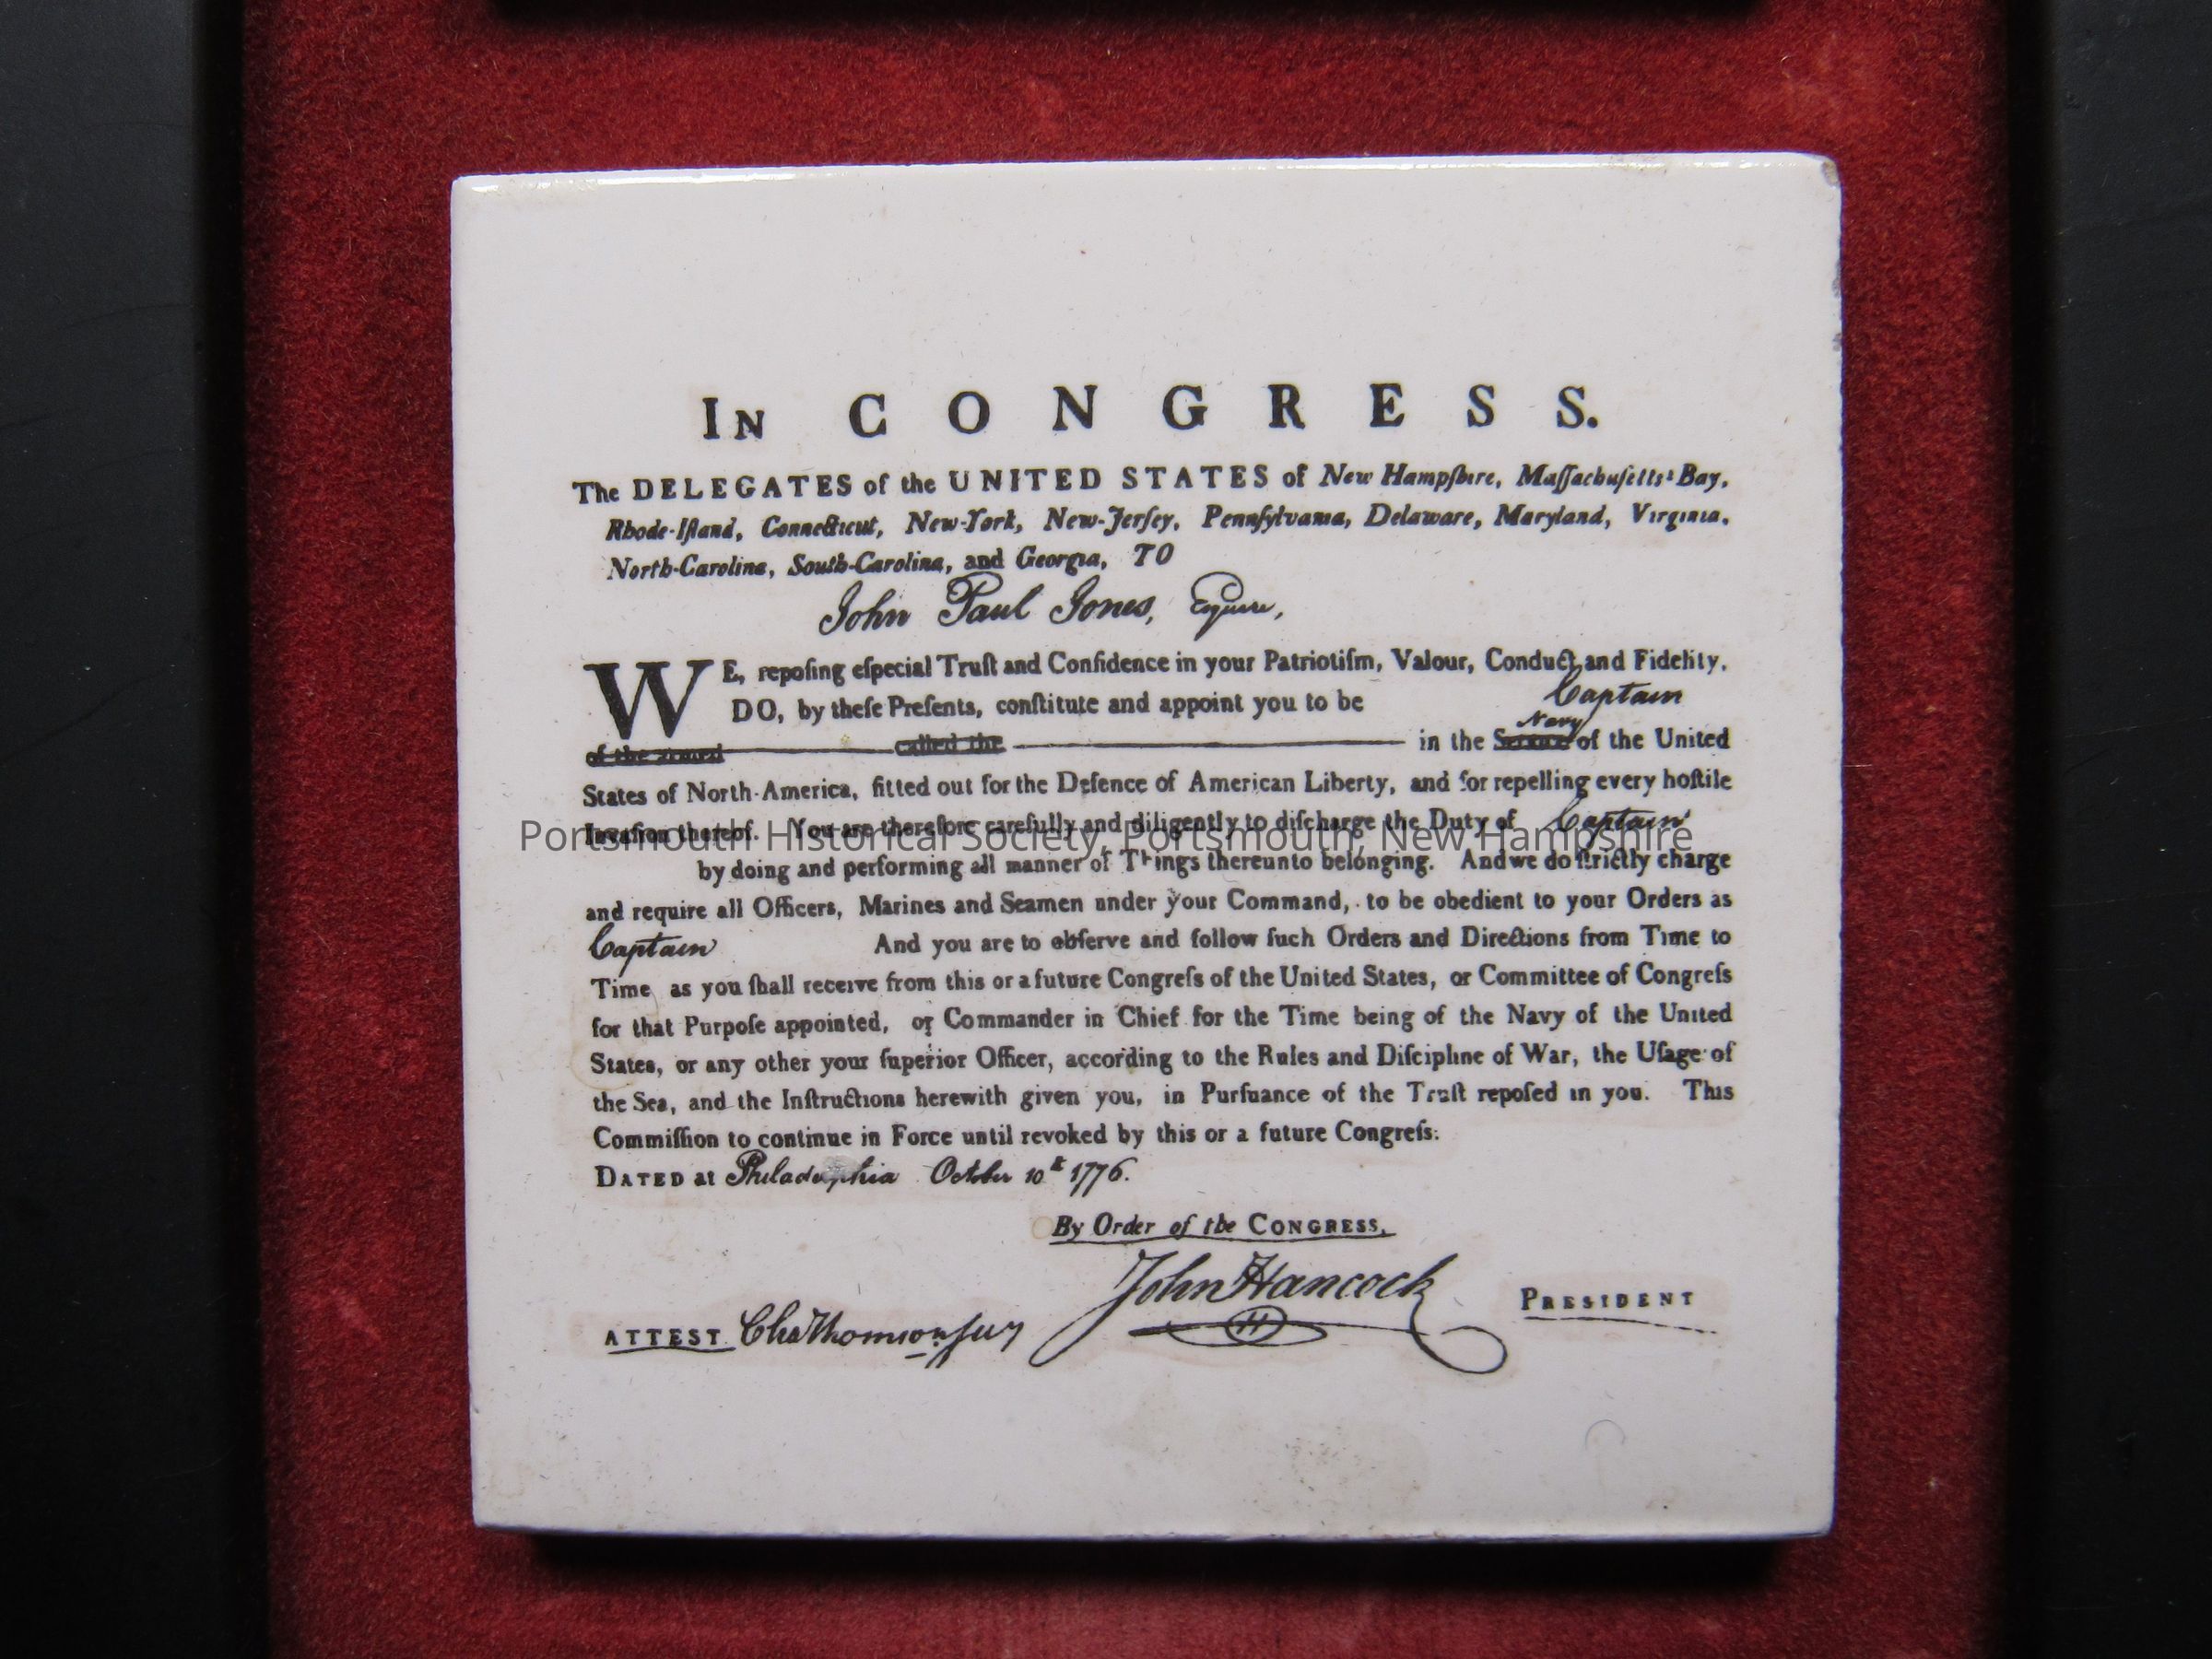 In CONGRESS.
The DELEGATES of the UNITED STATES of New Hampſhire, Maſſachuſetts-Bay,
Rhode-Iſland, Connecticut, New-York, New-Jerſey, Pennſylvania, Delaware, Maryland, Virginia,
North-Carolina, South-Carolina, and Georgia, TO
John Paul Jones, Esquire,
WE, repoſing eſpecial Truſt and Confidence in your Patriotiſm, Valour, Conduct, and Fidelity,
DO, by theſe Preſents, conſtitute and appoint you to be Captain
Navy
of the armed called the in the Service of the United
States of North-America, fitted out for the Defence of American Liberty, and for repelling every hoſtile
Invaſion thereof. You are therefore carefully and diligently to diſcharge the Duty of Captain
Portsmouth Historical Society, Portsmouth, New Hampshire
by doing and performing all manner of Things thereunto belonging. And we do ſtrictly charge
and require all Officers, Marines and Seamen under your Command, to be obedient to your Orders as
Captain And you are to obſerve and follow ſuch Orders and Directions from Time to
Time as you ſhall receive from this or a future Congreſs of the United States, or Committee of Congreſs
for that Purpoſe appointed, or Commander in Chief for the Time being of the Navy of the United
States, or any other your ſuperior Officer, according to the Rules and Diſcipline of War, the Uſage of
the Sea, and the Inſtructions herewith given you, in Purſuance of the Truſt repoſed in you. This
Commiſſion to continue in Force until revoked by this or a future Congreſs.
DATED at Philadelphia October 10th 1776.
By Order of the CONGRESS,
John Hancock PRESIDENT
ATTEST Cha Thomson secy